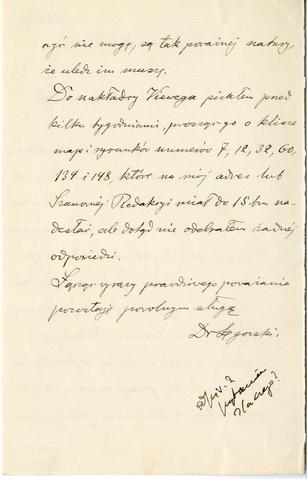 ażć nie mogę, są tak poważnej natury,
że uledz im muszę.
Do nakładcy Viewega pisałem przed
kilku tygodniami, prosząc go o klisze
map i rysunków numerów 7, 12, 32, 60,
134 i 148, które na mój adres lub
Szanownej Redakcyi miał do 15 bm. na-
desłać, ale dotąd nie odebrałem żadnej
odpowiedzi.
Łącząc wyrazy prawdziwego poważania
pozostaję powolnym sługą
Dr